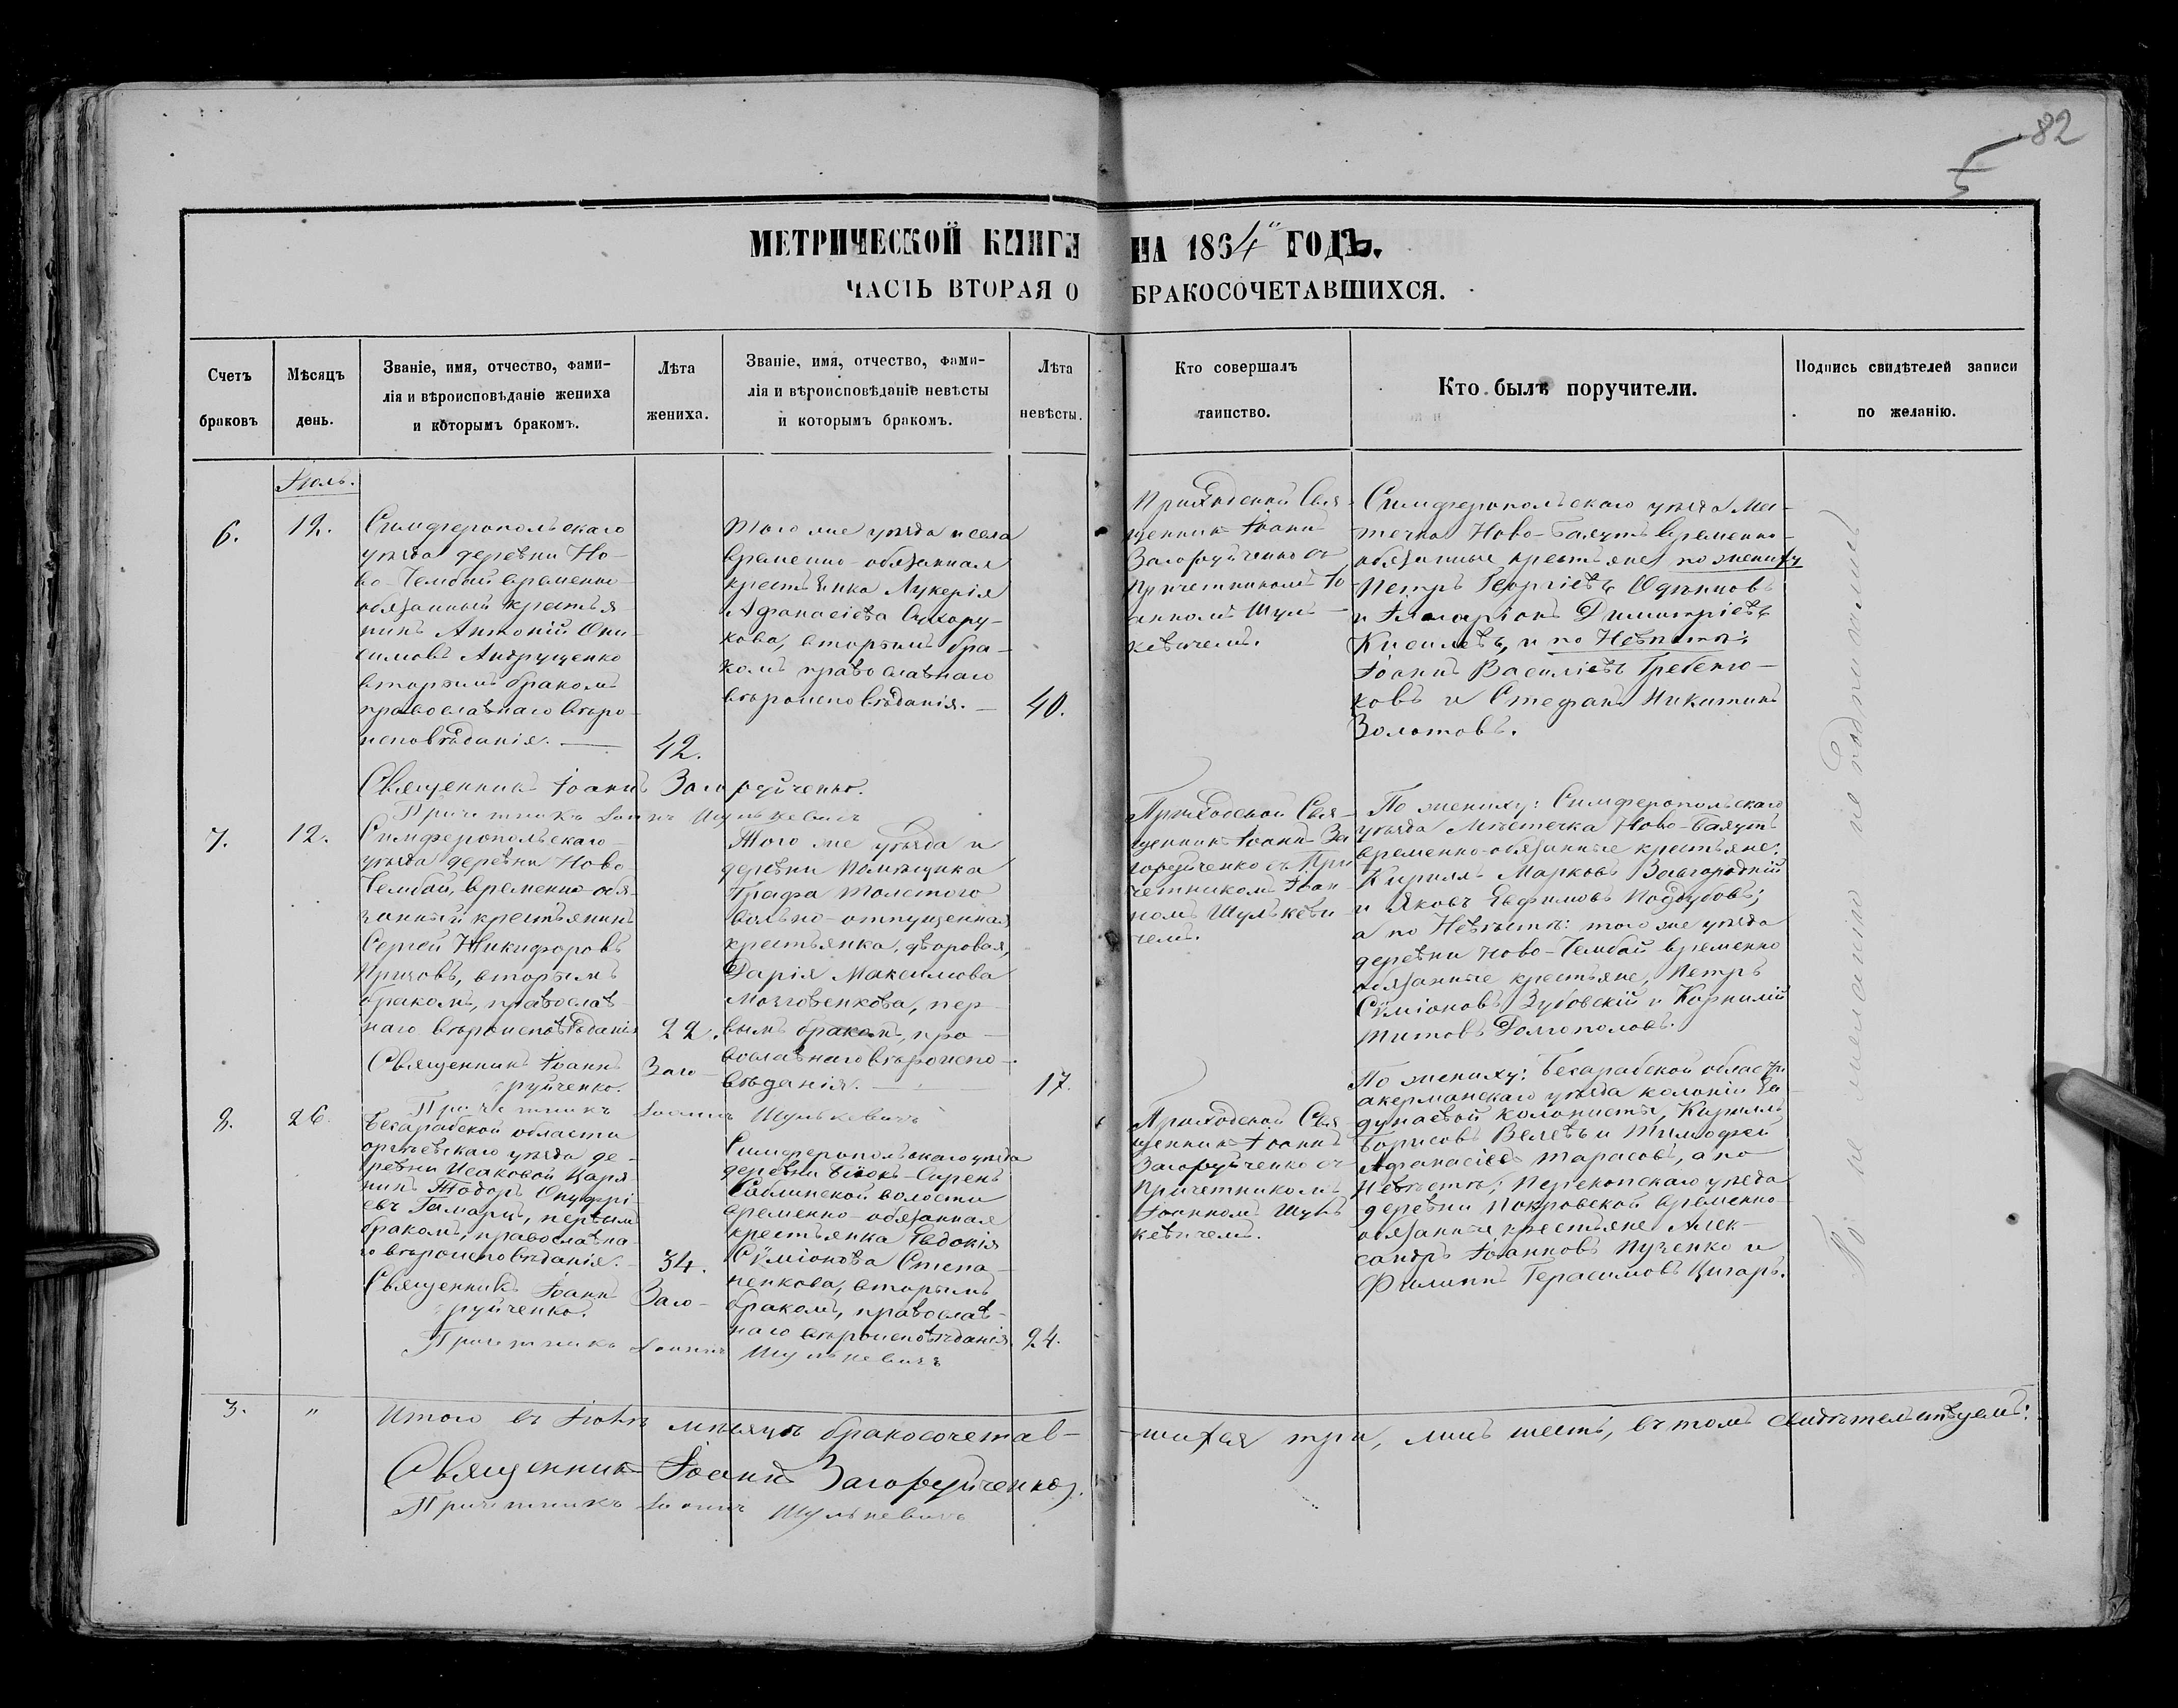 82
5
МЕТРИЧЕСКОЙ КНИГИ НА 1864 ГОДЪ.
ЧАСТЬ ВТОРАЯ О БРАКОСОЧЕТАВШИХСЯ.
Счетъ браковъ
Мѣсяцъ день.
Званіе, имя, отчество, фами-
лія и вѣроисповѣданіе жениха
и которымъ бракомъ.
Лѣта жениха.
Званіе, имя, отчество, фами-
лія и вѣроисповѣданіе невѣсты
и которымъ бракомъ.
Лѣта невѣсты.
Кто совершалъ таинство.
Кто былъ поручители.
Подпись свидѣтелей записи
по желанію.
Іюль.
6.
12.
Симферопольскаго
уѣзда деревни Но-
во-Чембай временно-
обязанный крестья-
нинъ Антоній Они-
симовъ Андрущенко
вторымъ бракомъ
православнаго вѣро-
исповѣданія.
42.
Того же уѣзда и села
временно-обязанная
крестьянка Лукерія
Афанасіева Сухору-
кова, вторымъ бра-
комъ православнаго
вѣроисповѣданія.
40.
Приходской Свя-
щенникъ Іоаннъ
Загоруйченко съ
Причетникомъ Іо-
анномъ Шуль-
кевичемъ.
Симферопольскаго уѣзда Мѣс-
течка Ново-Баяутъ временно-
обязанные крестьяне по жениху
Петръ Георгіевъ Одинцовъ
и Иларіонъ Димитріевъ
Киселевъ, и по Невѣстѣ:
Іоаннъ Василіевъ Гребенко-
ковъ и Стефанъ Никитинъ
Золотовъ.
Священникъ Іоаннъ Загоруйченко.
Причетникъ Іоаннъ Шулькевичъ
7.
12.
Симферопольскаго
уѣзда деревни Ново
Чембай, временно-обя-
занный крестьянинъ
Сергей Никифоровъ
вторымъ
бракомъ, православ-
наго вѣроисповѣданія
22.
Того же уѣзда и
деревни помѣщика
Графа Толстого
вольно-отпущенная
крестьянка, дворовая,
Дарія Максимова
Мозговенкова, пер-
вымъ бракомъ, пра-
вославнаго вѣроиспо-
вѣданія.
17.
Приходской Свя-
щенникъ Іоаннъ За-
горуйченко съ При-
четникомъ Іоан-
номъ Шулькеви-
чемъ.
По жениху: Симферопольскаго
уѣзда Мѣстечка Ново-Баяутъ
временно-обязанные крестьяне:
Кириллъ Марковъ Завгородній
и Яковъ Евфимовъ Поддубовъ;
а по Невѣстѣ: того же уѣзда
деревни Ново-Чембай временно
обязанные крестьяне, Петръ
Сѵміоновъ Зубовскій и Корнилій
Титовъ Долгополовъ.
Священникъ Іоаннъ Заго-
руйченко.
Причетникъ Іоаннъ Шулькевичъ
8.
26.
Бесарабской области
оргѣевскаго уѣзда де-
ревни Исаковой Царя-
нинъ Тодоръ Онуфрі-
евъ Гамарцъ, первымъ
бракомъ, православна-
го вѣроисповѣданія.
34.
Симферопольскаго уѣзда
деревни Біюкъ-Сюрень
Саблинской волости
временно-обязанная
крестьянка Евдокія
Сѵміонова Степа-
ненкова, вторымъ
бракомъ, православ-
наго вѣроисповѣданія
24.
Приходской Свя-
щенникъ Іоаннъ
Загоруйченко съ
Причетникомъ
Іоанномъ Шуль-
кевичемъ.
По жениху: Бесарабской области
акерманскаго уѣзда колоніи За-
дунаевой колонисты, Кириллъ
Борисовъ Велевъ и Тимофей
Афанасіевъ Тарасовъ, а по
Невѣстѣ; Перекопскаго уѣзда
деревни Покровской временно-
обязанные крестьяне Алек-
сандръ Іоанновъ Пученко и
Филиппъ Герасимовъ Цигарь.
Священникъ Іоаннъ Заго-
руйченко.
Причетникъ Іоаннъ Шулькевичъ
По не желанію не подписались
3.
"
Итого въ Іюлѣ мѣсяцѣ бракосочетав-шихся три, лицъ шесть, въ томъ свидѣтельствуемъ:
Священникъ Іоаннъ Загоруйченко.
Причетникъ Іоаннъ Шулькевичъ